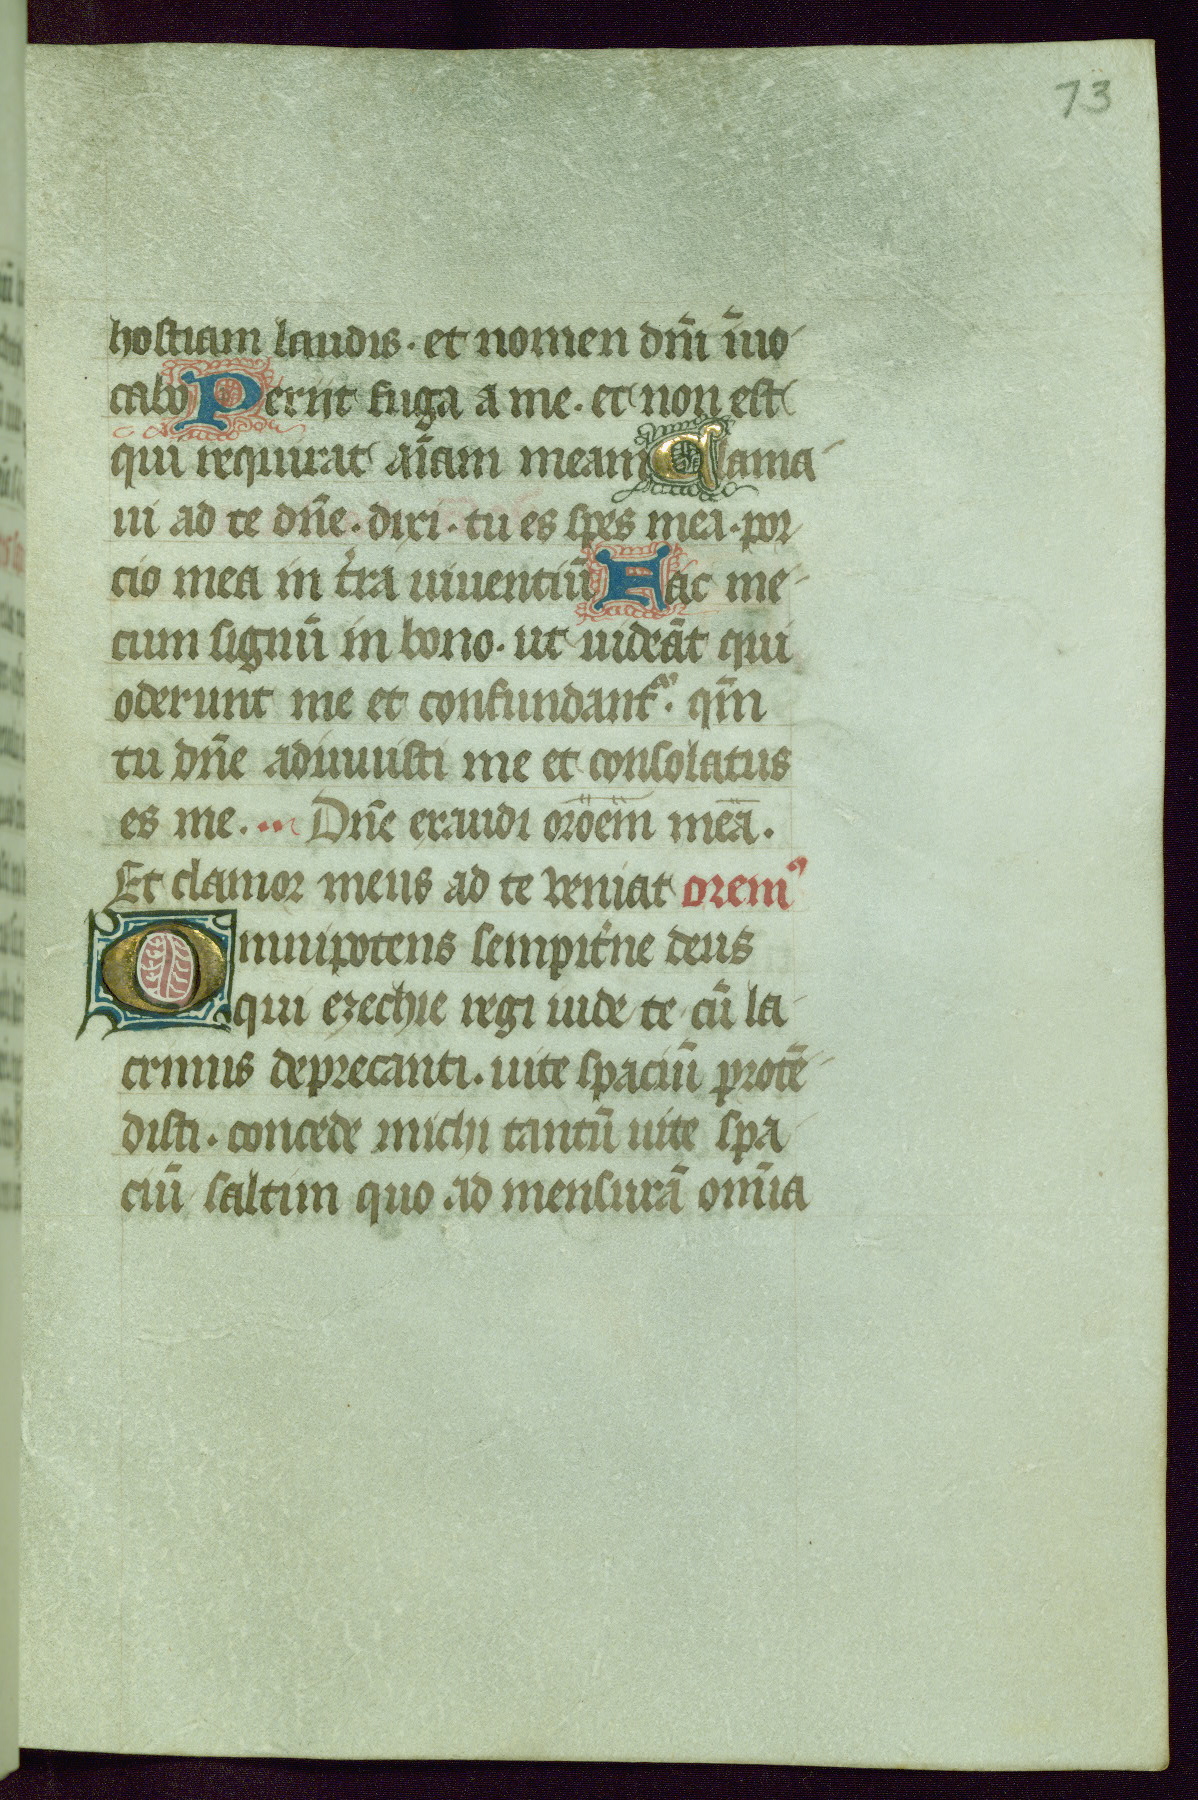 73
hostiam laudis. et nomen dn̄i īuo
cabo Periit fuga a me. et non est
qui requirat aīam meam Clama
ui ad te dn̄e. dixi. tu es spes mea. por
cio mea in t̓ra uiuentiū Fac me
cum signū in bono. ut uideāt qui
oderunt me et confundant᷑. qm̄
tu dn̄e adiuuisti me et consolatus
es me. Dn̄e exaudi orōem̄ meā.
Et clamor meus ad te veniat orem᷒
Omnipotens sempit̓ne deus
qui ezechie regi iude te cū la
crimis deprecanti. uite spaciū protē
disti. concede michi tantū uite spa
ciū saltim quo ad mensurā om̄ia